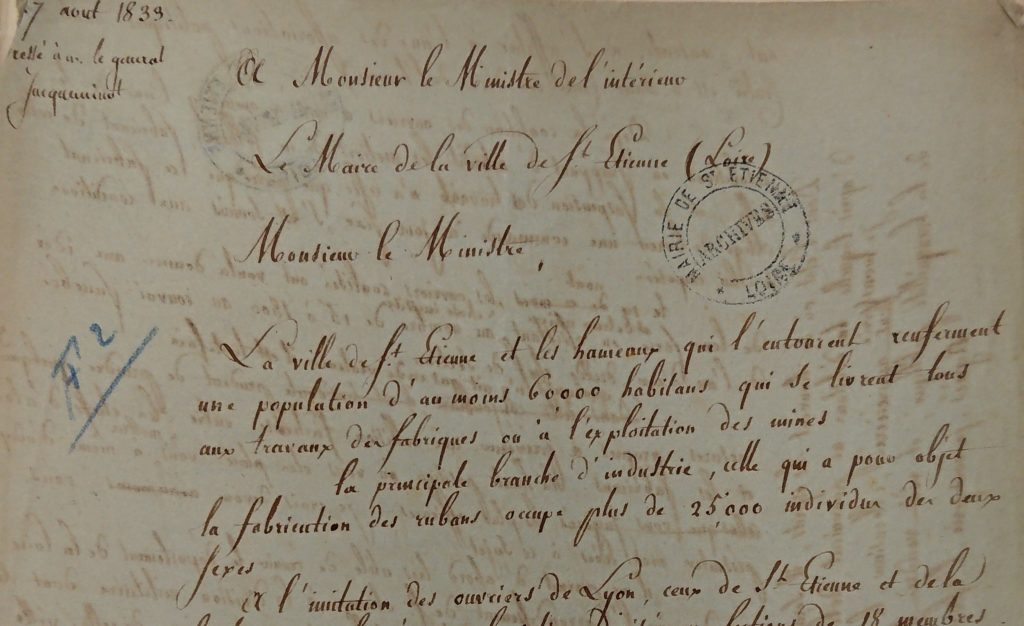 7 aout 1833.
ressé à m. le general
Jacqueminot
A Monsieur le Ministre de l'intérieur
Le Maire de la ville de St. Etienne (Loire)
MAIRIE DE ST ETIENNE
ARCHIVES
LOIRE
Monsieur le Ministre,
F 2
La ville de St. Etienne et les hameaux qui l'entourent renferment
une population d'au moins 60000 habitans qui se livrent tous
aux travaux des fabriques ou à l'exploitation des mines
la principale branche d'industrie, celle qui a pour objet
la fabrication des rubans occupe plus de 25000 individus des deux
sexes
A l'imitation des ouvriers de Lyon, ceux de St Etienne et de la
de 18 membres